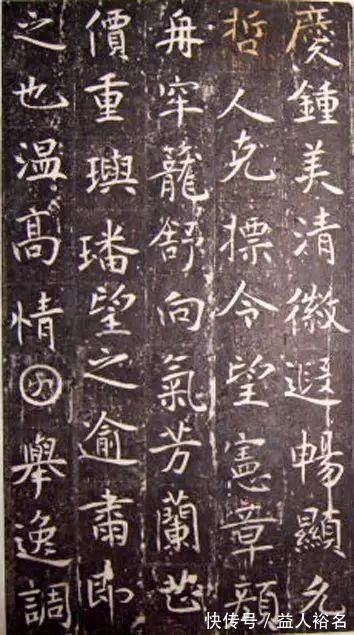 慶鍾美清徽遐暢顯允
哲人克摽令望憲章顔
冉牢籠舒向氣芳蘭芷
價重璵璠望之逾肅即
之也温高情舉逸調
快传号/益人裕名